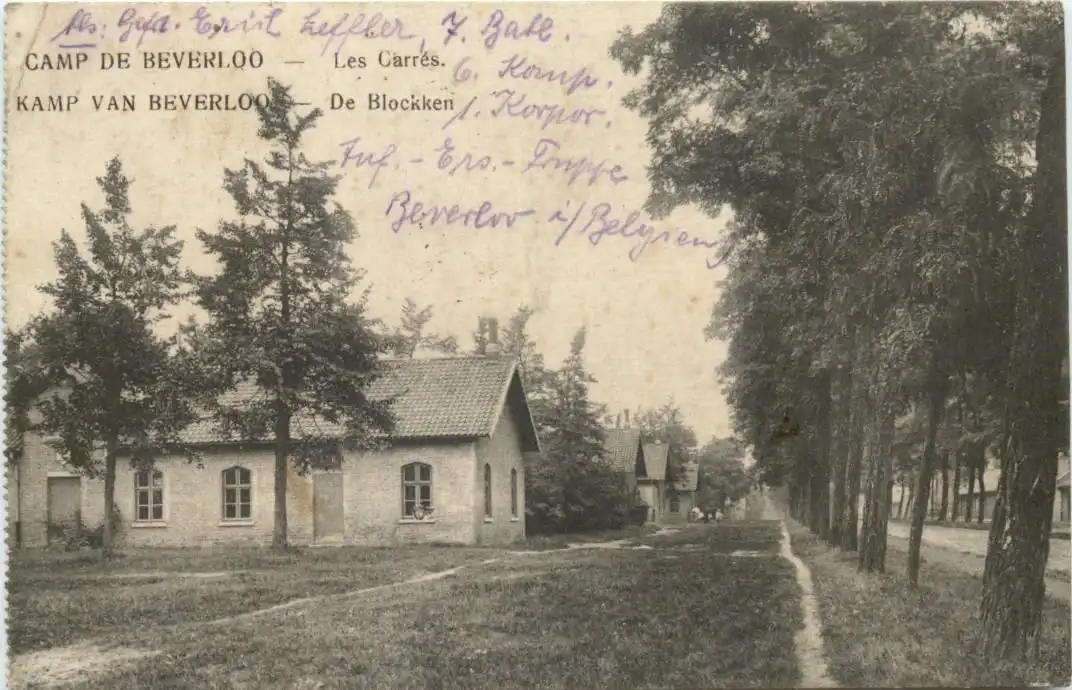 Abs: Gefr. Emil Leffler, 7. Batl.
CAMP DE BEVERLOO — Les Carrés.
6. Komp.
KAMP VAN BEVERLOO — De Blockken
1. Korpor.
Inf.-Ers.-Truppe
Beverloo i/Belgien